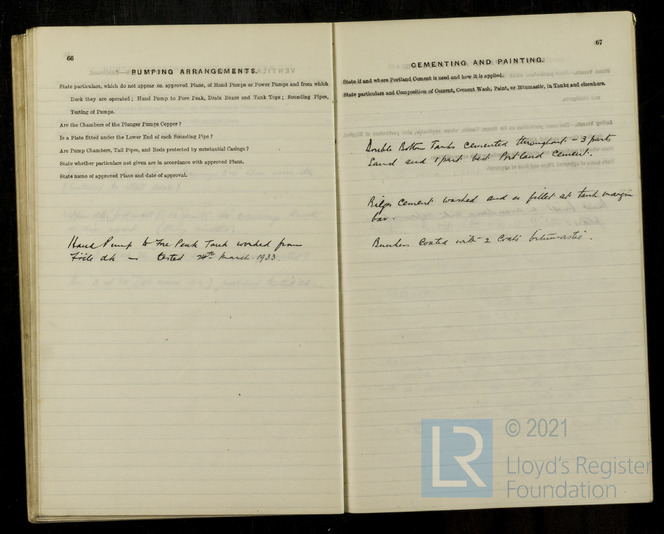 66
PUMPING ARRANGEMENTS.
State particulars, which do not appear on approved Plans, of Hand Pumps or Power Pumps and from which
Deck they are operated; Hand Pump to Fore Peak, Drain Boxes and Tank Tops; Sounding Pipes,
Testing of Pumps.
Are the Chambers of the Plunger Pumps Copper?
Is a Plate fitted under the Lower End of each Sounding Pipe?
Are Pump Chambers, Tail Pipes, and Rods protected by substantial Casings?
State whether particulars not given are in accordance with approved Plans.
State name of approved Plans and date of approval.
Hand Pump to Fore Peak Tank worked from
F'cle dk — tested 24th March 1933
67
CEMENTING AND PAINTING.
State if and where Portland Cement is used and how it is applied.
State particulars and Composition of Cement, Cement Wash, Paint, or Bitumastic, in Tanks and elsewhere.
Double Bottom Tanks cemented throughout - 3 parts
Sand and 1 part best Portland Cement.
Bilges cement washed and a fillet at tank margin
bar.
Bunkers coated with 2 coats bitumastic.
© 2021
LR
Lloyd's Register
Foundation